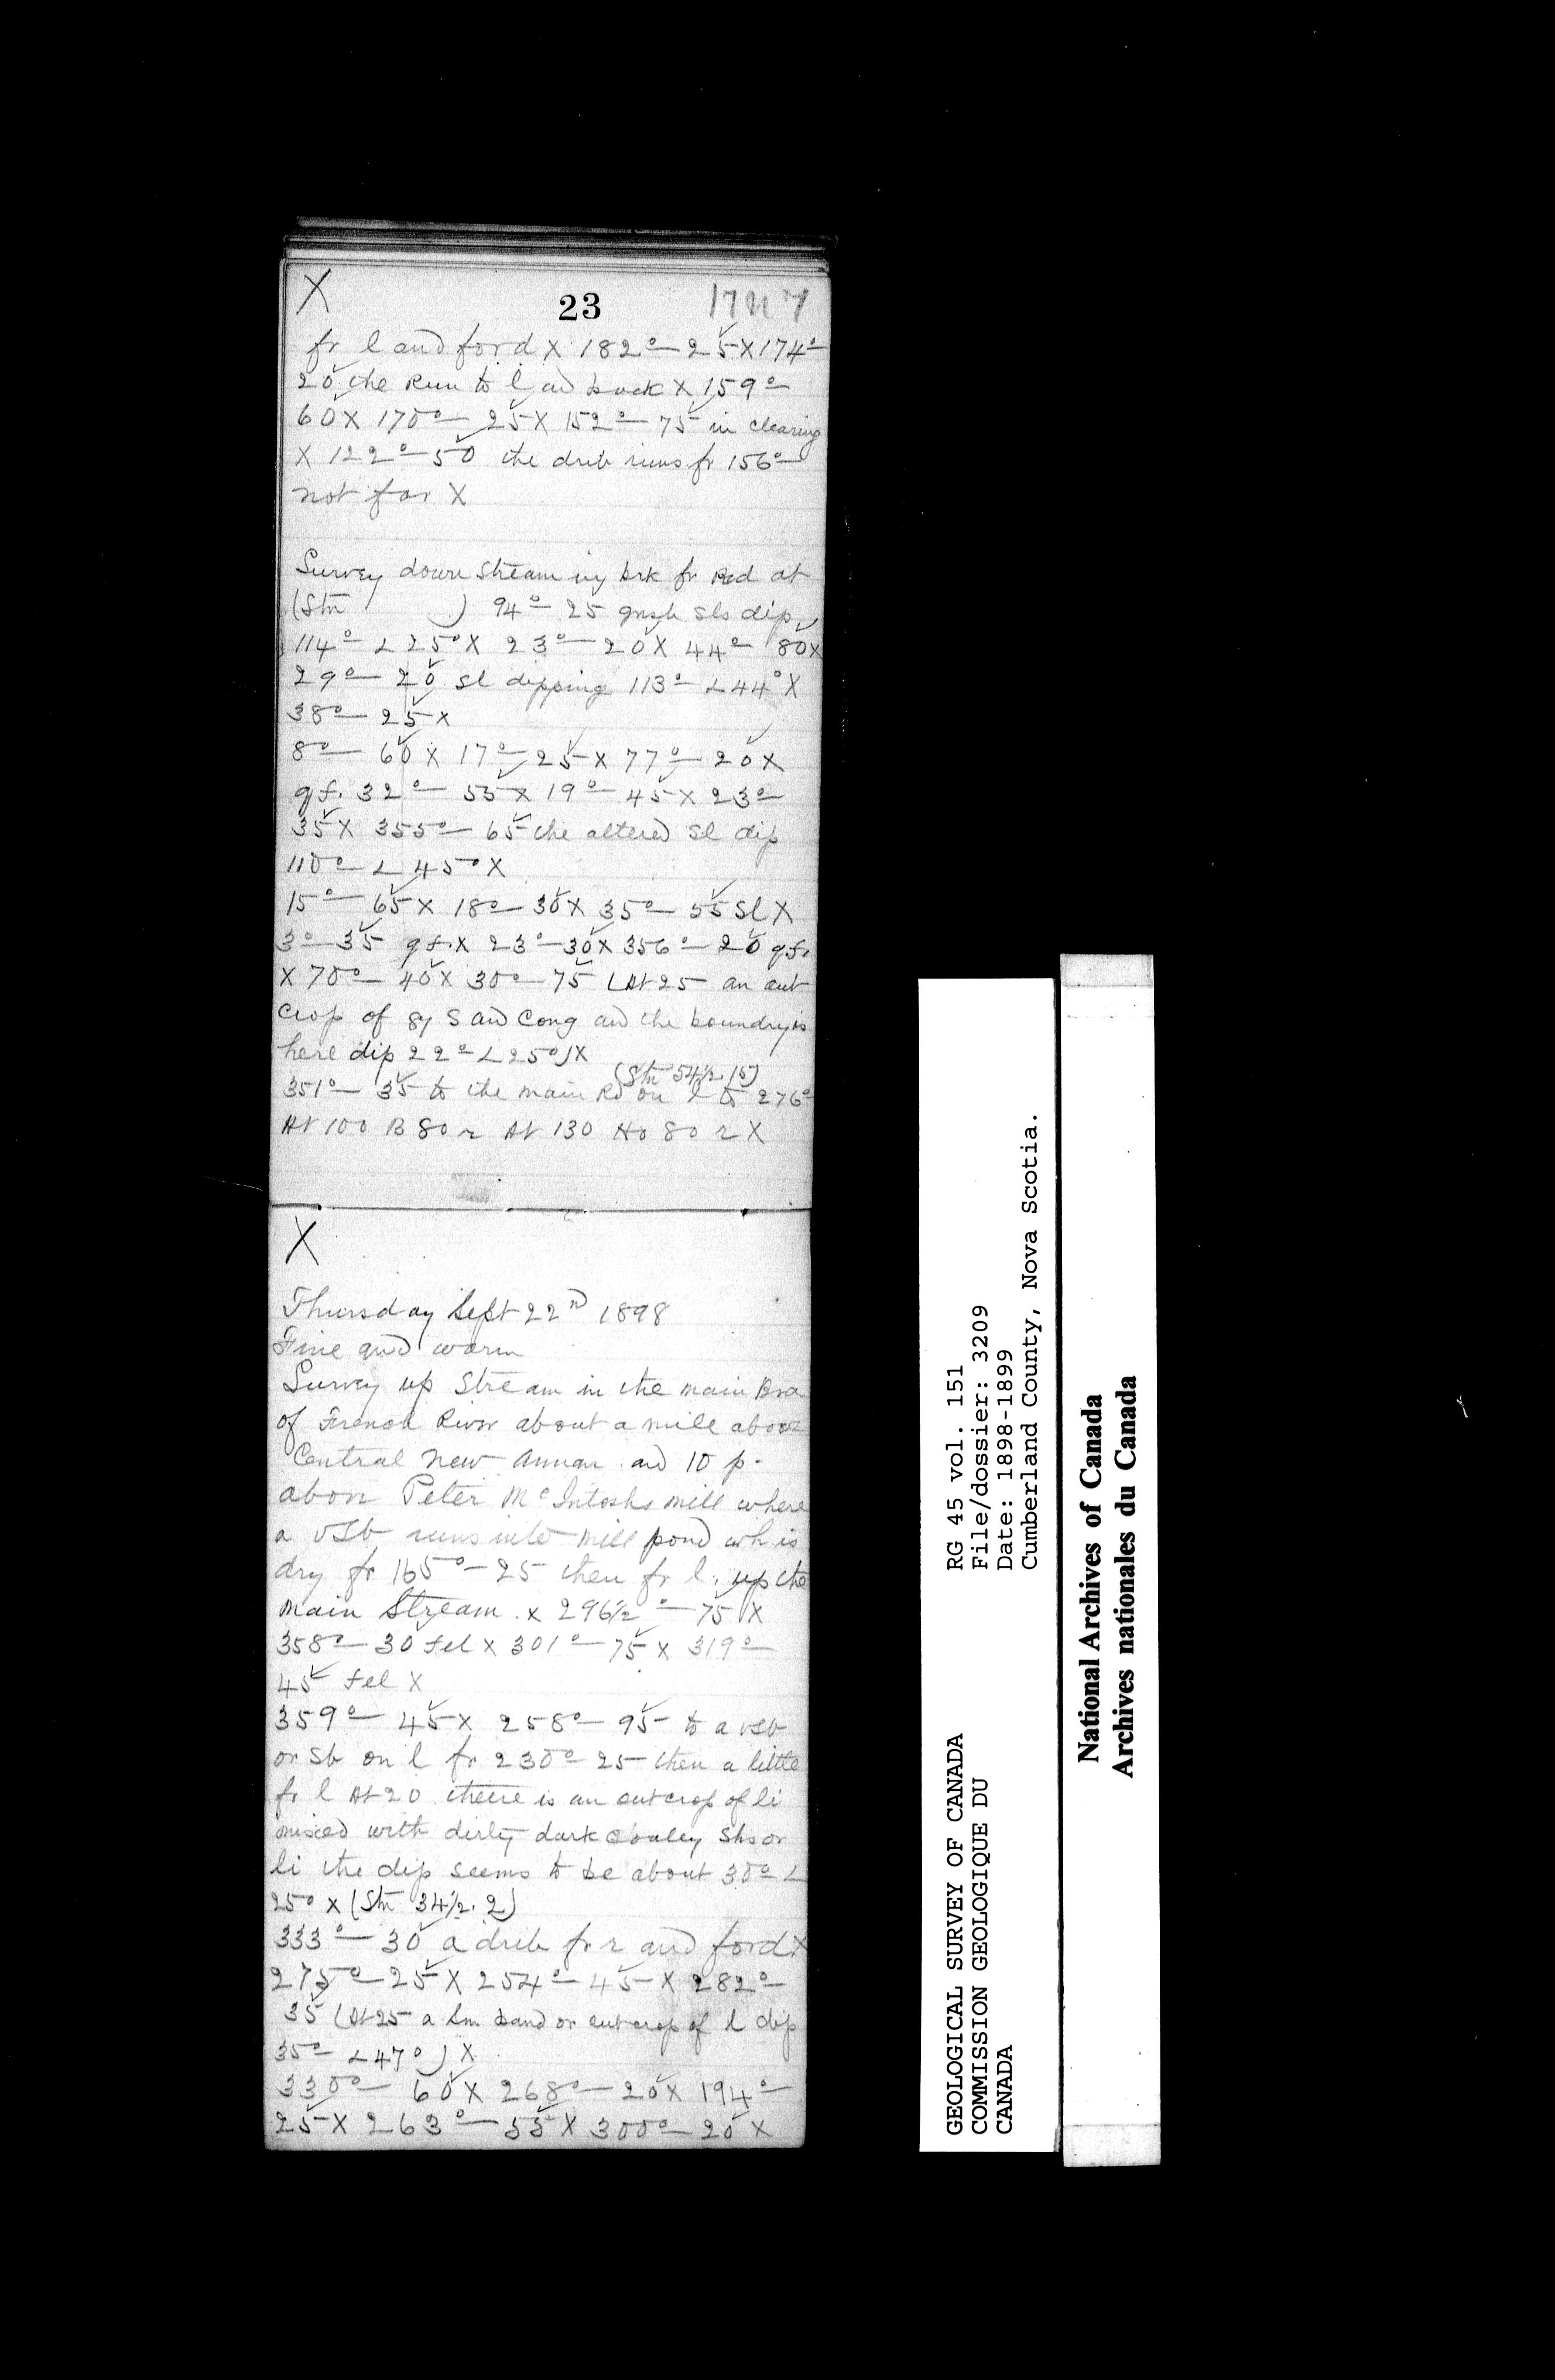 X 23
fr l and ford X 182° — 25 X 174° —
20 the Run to l and back X 159° —
60 X 170° — 25 X 152° — 75 in clearing
X 122° — 50 the drib runs fr 156° —
not far X
Survey down stream in brk fr Rd at
(Stn ) 94° — 25 sls dip
114° — L 25° X 23° — 20 X 44° — 80 X
29° — 20 sl dipping 113° — L 44° X
38° — 25 X
8° — 60 X 17° — 25 X 77° — 20 X
gf. 32° — 55 X 19° — 45 X 23° —
35 X 355° — 65 the altered sl dip
110° — L 45° X
15° — 65 X 18° — 30 X 35° — 55 sl X
3° — 35 gf. X 23° — 30 X 356° — 20 gf.
X 70° — 40 X 30° — 75 (At 25 an out
crop of gy S and Cong and the boundry is
here dip 22° — L 25°) X
(Stn 54½ 15)
351° — 35 to the main Rd on l to 276° —
At 100 B 80 r At 130 Ho 80 r X
X
Thursday Sept 22nd 1898
Fine and warm
Survey up Stream in the main Bra
of French River about a mile above
Central New Annan and 10 p.
above Peter McIntoshs mill where
a vsb runs into mill pond wh is
dry fr 165° — 25 then fr l. up the
main Stream. x 296½° — 75 X
358° — 30 fel x 301° — 75 x 319° —
45 fel X
359° — 45 x 258° — 95 to a vsb
or sb on l fr 230° — 25 then a little
fr l At 20 there is an outcrop of li
mixed with dirty dark coaley Shs or
li the dip seems to be about 30° — L
25° x (Stn 34½. 2)
333° — 30 a drib fr r and ford X
275° — 25 X 254° — 45 X 282° —
35 (At 25 a sm band or outcrop of l dip
35° — L 47°) X
330° — 60 X 268° — 20 X 194° —
25 X 263° — 55 X 300° — 20 X
GEOLOGICAL SURVEY OF CANADA
COMMISSION GEOLOGIQUE DU
CANADA
RG 45 vol. 151
File/dossier: 3209
Date: 1898-1899
Cumberland County, Nova Scotia.
National Archives of Canada
Archives nationales du Canada